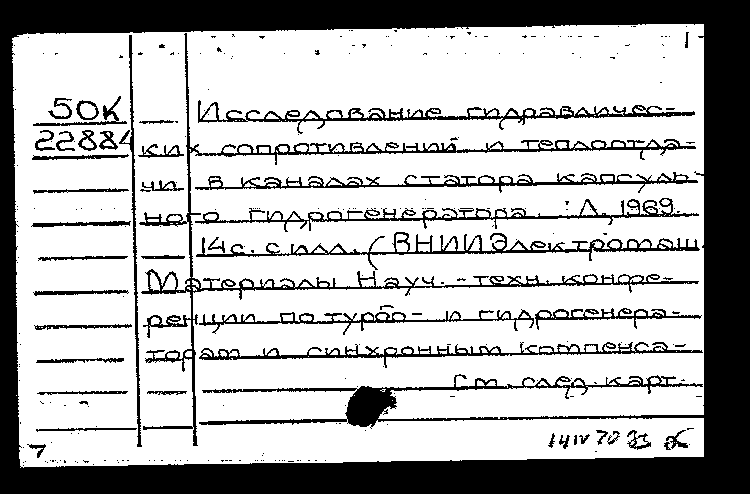 50К Исследование гидравличес-
22884 ких сопротивлений и теплоотда-
чи в каналах статора капсуль-
ного гидрогенератора. Л., 1969.
14 с. с илл. (ВНИИЭлектромаш.
Материалы Науч.-техн. конфе-
ренции по турбо- и гидрогенера-
торам и синхронным компенса-
См. след. карт.
7 14 IV 70